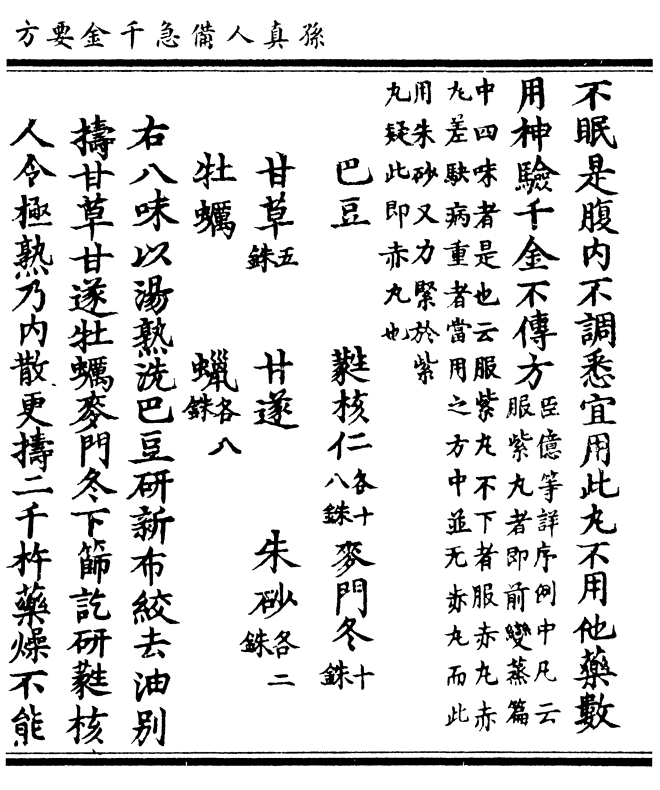 孫真人備急千金要方
不眠是腹内不調悉宜用此丸不用他藥數
用神驗千金不傳方臣億等詳序例中凡云
服紫丸者即前變蒸篇
中四味者是也云服紫丸不下者服赤丸赤
丸差駃病重者當用之方中並无赤丸而此
用朱砂又力緊於紫
丸疑此即赤丸也
巴豆 蕤核仁各十八銖 麥門冬十銖
甘草五銖 甘遂 朱砂各二銖
牡蠣 蠟各八銖
右八味以湯熟洗巴豆研新布絞去油别
擣甘草甘遂牡蠣麥門冬下篩訖研蕤核
人令極熟乃内散更擣二千杵藥燥不能